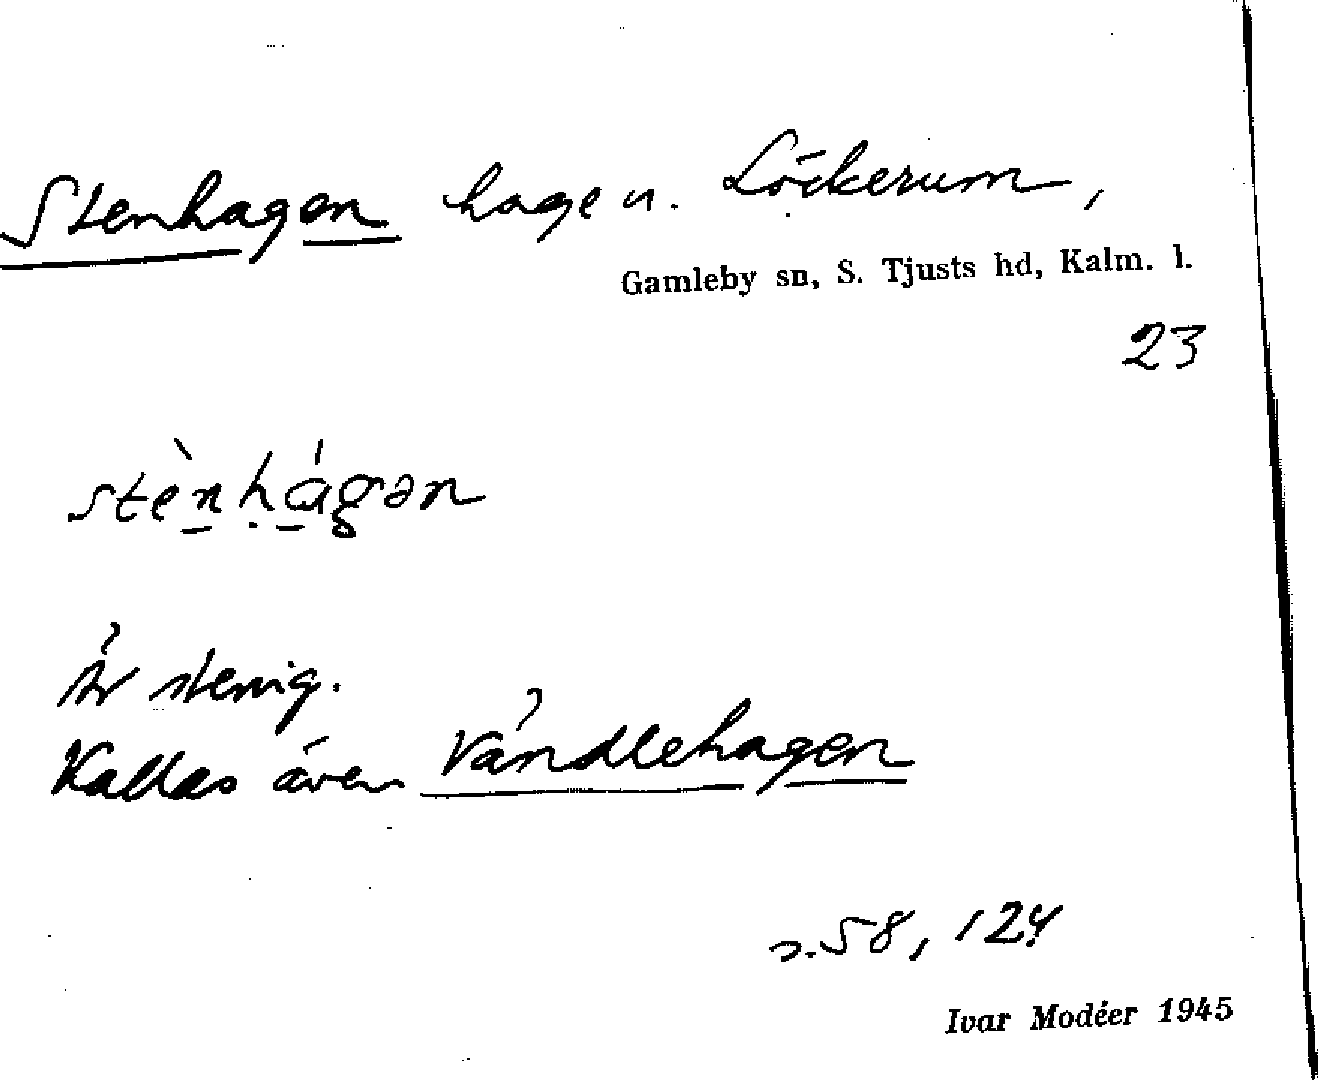 Stenhagen hage n. Löckerum,
Gamleby sn, S. Tjusts hd, Kalm. l.
23
stènhágən
Är stenig.
Kallas även Vändlehagen
s. 58, 124
Ivar Modéer 1945